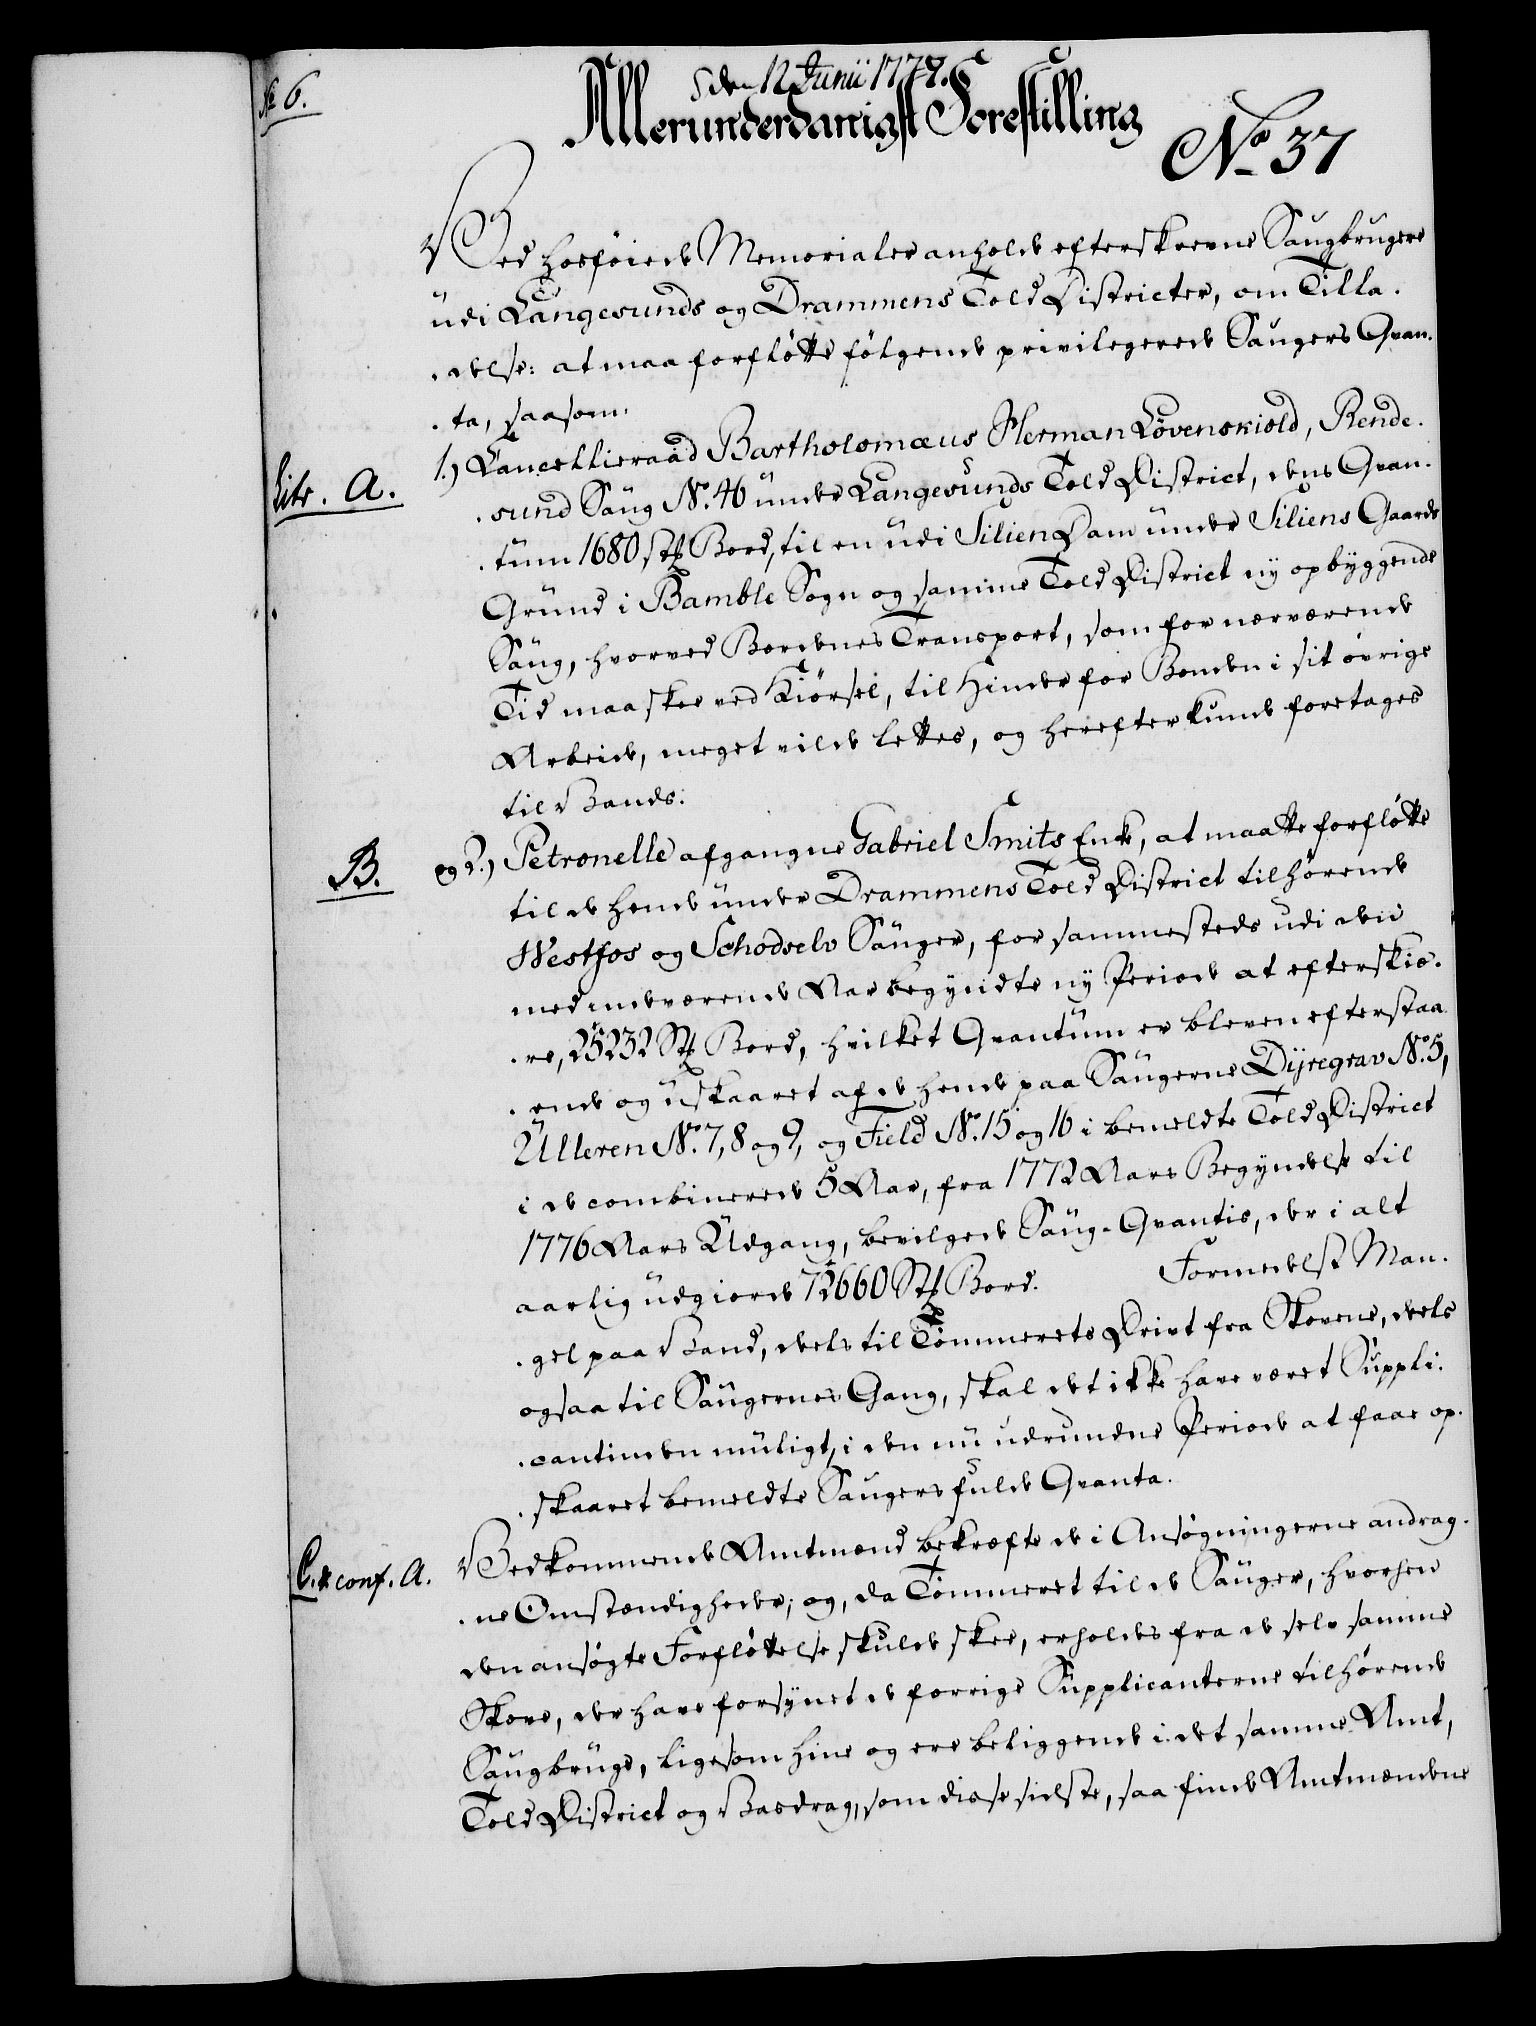 No 6.
d. 12 Junii 1777.
Allerunderdanigst Forestilling
No 37
Ved hosføiede Memorialer anholde efterskrevne Saugbrugere
udi Langesunds og Drammens Told Districter, om Tilla-
-delse: at maa forflötte følgende privilegerede Saugers Qvan-
-ta, saasom.
Litr. A.
1.) Cancellieraad Bartholomæus Herman Lövenskiold, Rende-
-sund Saug No. 46 under Langesunds Told District, dens Qvan-
-tum 1680 Stk Bord, til en udi Silien Dam under Siliens Gaards
Grund i Bamble Sogn og samme Told District ny opbyggende
Saug, hvorved Bordenes Transport, som for nærværende
Tid maa skee ved Kiørsel, til Hinder for Bonden i sit øvrige
Arbeide, meget vilde lettes, og herefter kunde foretages
til Vands.
B.
og 2.) Petronelle afgangne Gabriel Smits Enke, at maatte forflötte
til de hende under Drammens Told District tilhørende
Westfos og Schodselv Sauger, for sammesteds udi den
med indeværende Aar begyndte ny Periode at efterskiæ-
-re, 25232 Stk Bord, hvilket Qvantum er bleven efterstaa-
-ende og uskaaret af de hende paa Saugerne Dyregrav No. 5,
Ulleren No. 7, 8 og 9, og Field No. 15 og 16 i bemeldte Told District
i de combinerede 5 Aar, fra 1772 Aars Begyndelse til
1776 Aars Udgang, bevilgede Saug-Qvantis, der i alt
aarlig udgiorde 72660 Stk Bord. Formedelst Man-
-gel paa Vand, deels til Tömmerets Drivt fra Skovene, deels
ogsaa til Saugernes Gang, skal det ikke have været Suppli-
-cantinden muligt, i den nu udrundne Periode at faae op-
-skaaret bemeldte Saugers fulde Qvanta.
C. & conf. A.
Vedkommende Amtmænd bekræfte de i Ansøgningerne andrag-
-ne Omstændigheder; og, da Tömmeret til de Sauger, hvorhen
den ansøgte Forflöttelse skulde skee, erholdes fra de selv samme
Skove, der have forsynet de forrige Supplicanterne tilhørende
Saugbruge, ligesom hine og ere beliggende i det samme Amt,
Told District og Vasdrag, som disse sidste, saa finde Amtmændene